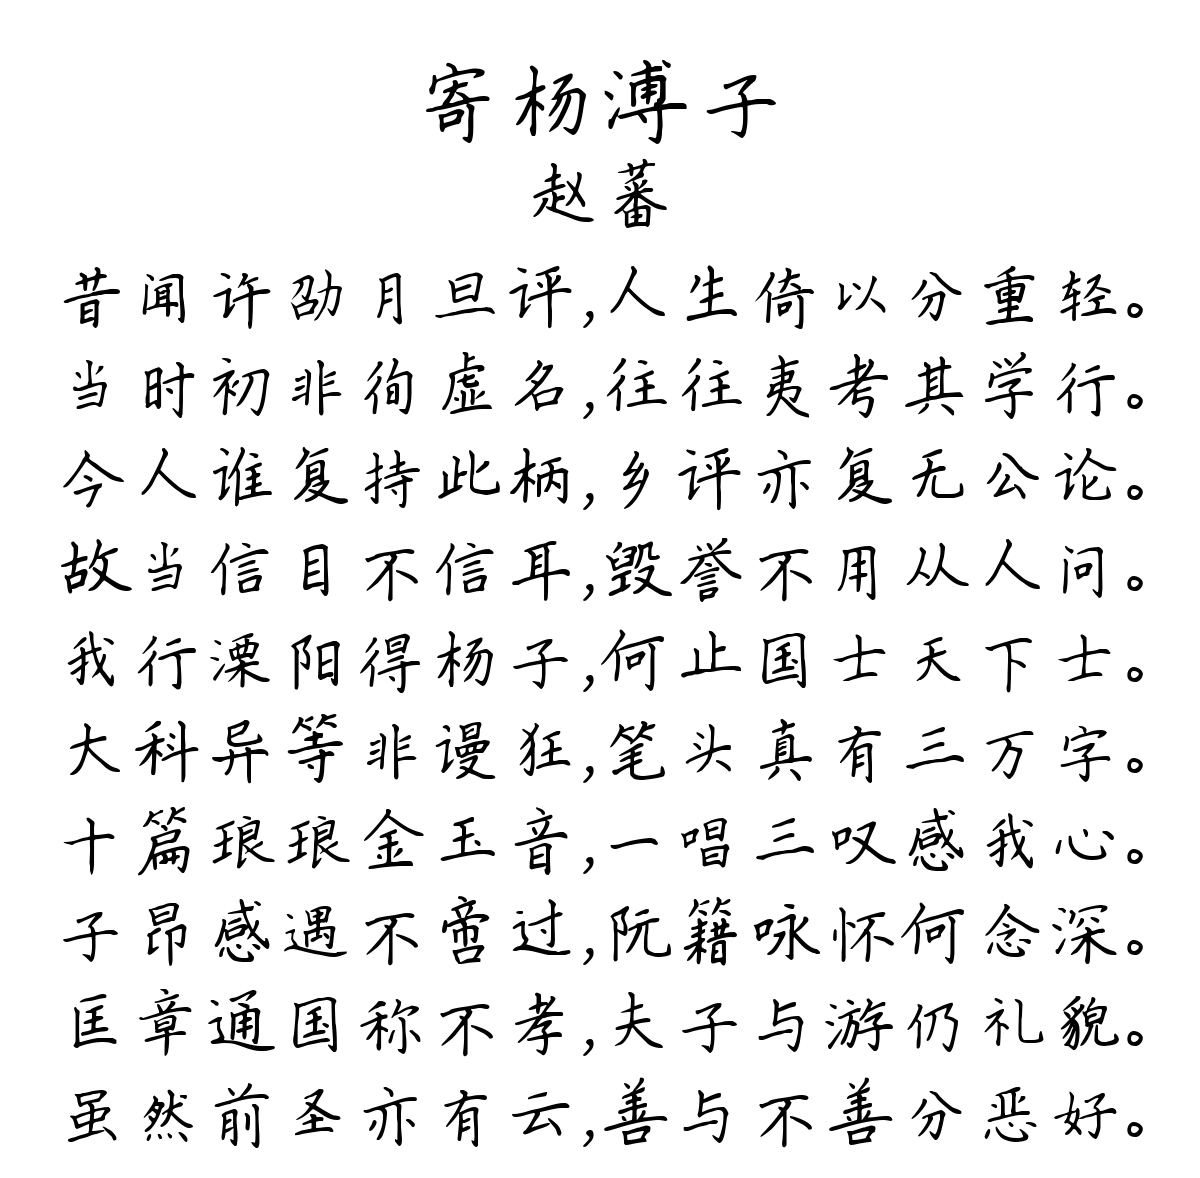 寄杨溥子
赵蕃
昔闻许劭月旦评,人生倚以分重轻。
当时初非徇虚名,往往夷考其学行。
今人谁复持此柄,乡评亦复无公论。
故当信目不信耳,毁誉不用从人问。
我行溧阳得杨子,何止国士天下士。
大科异等非谩狂,笔头真有三万字。
十篇琅琅金玉音,一唱三叹感我心。
子昂感遇不啻过,阮籍咏怀何念深。
匡章通国称不孝,夫子与游仍礼貌。
虽然前圣亦有云,善与不善分恶好。